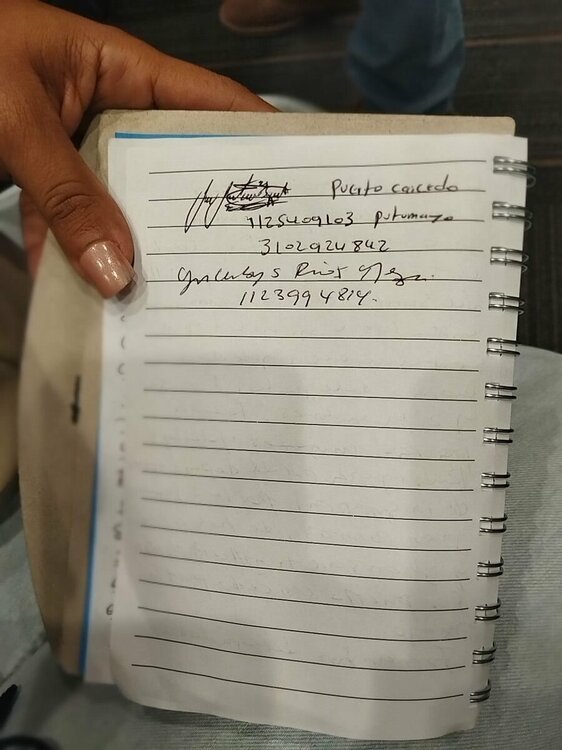 Puerto caicedo
1125409103 Putumayo
3102924842
Rios
1123994814.